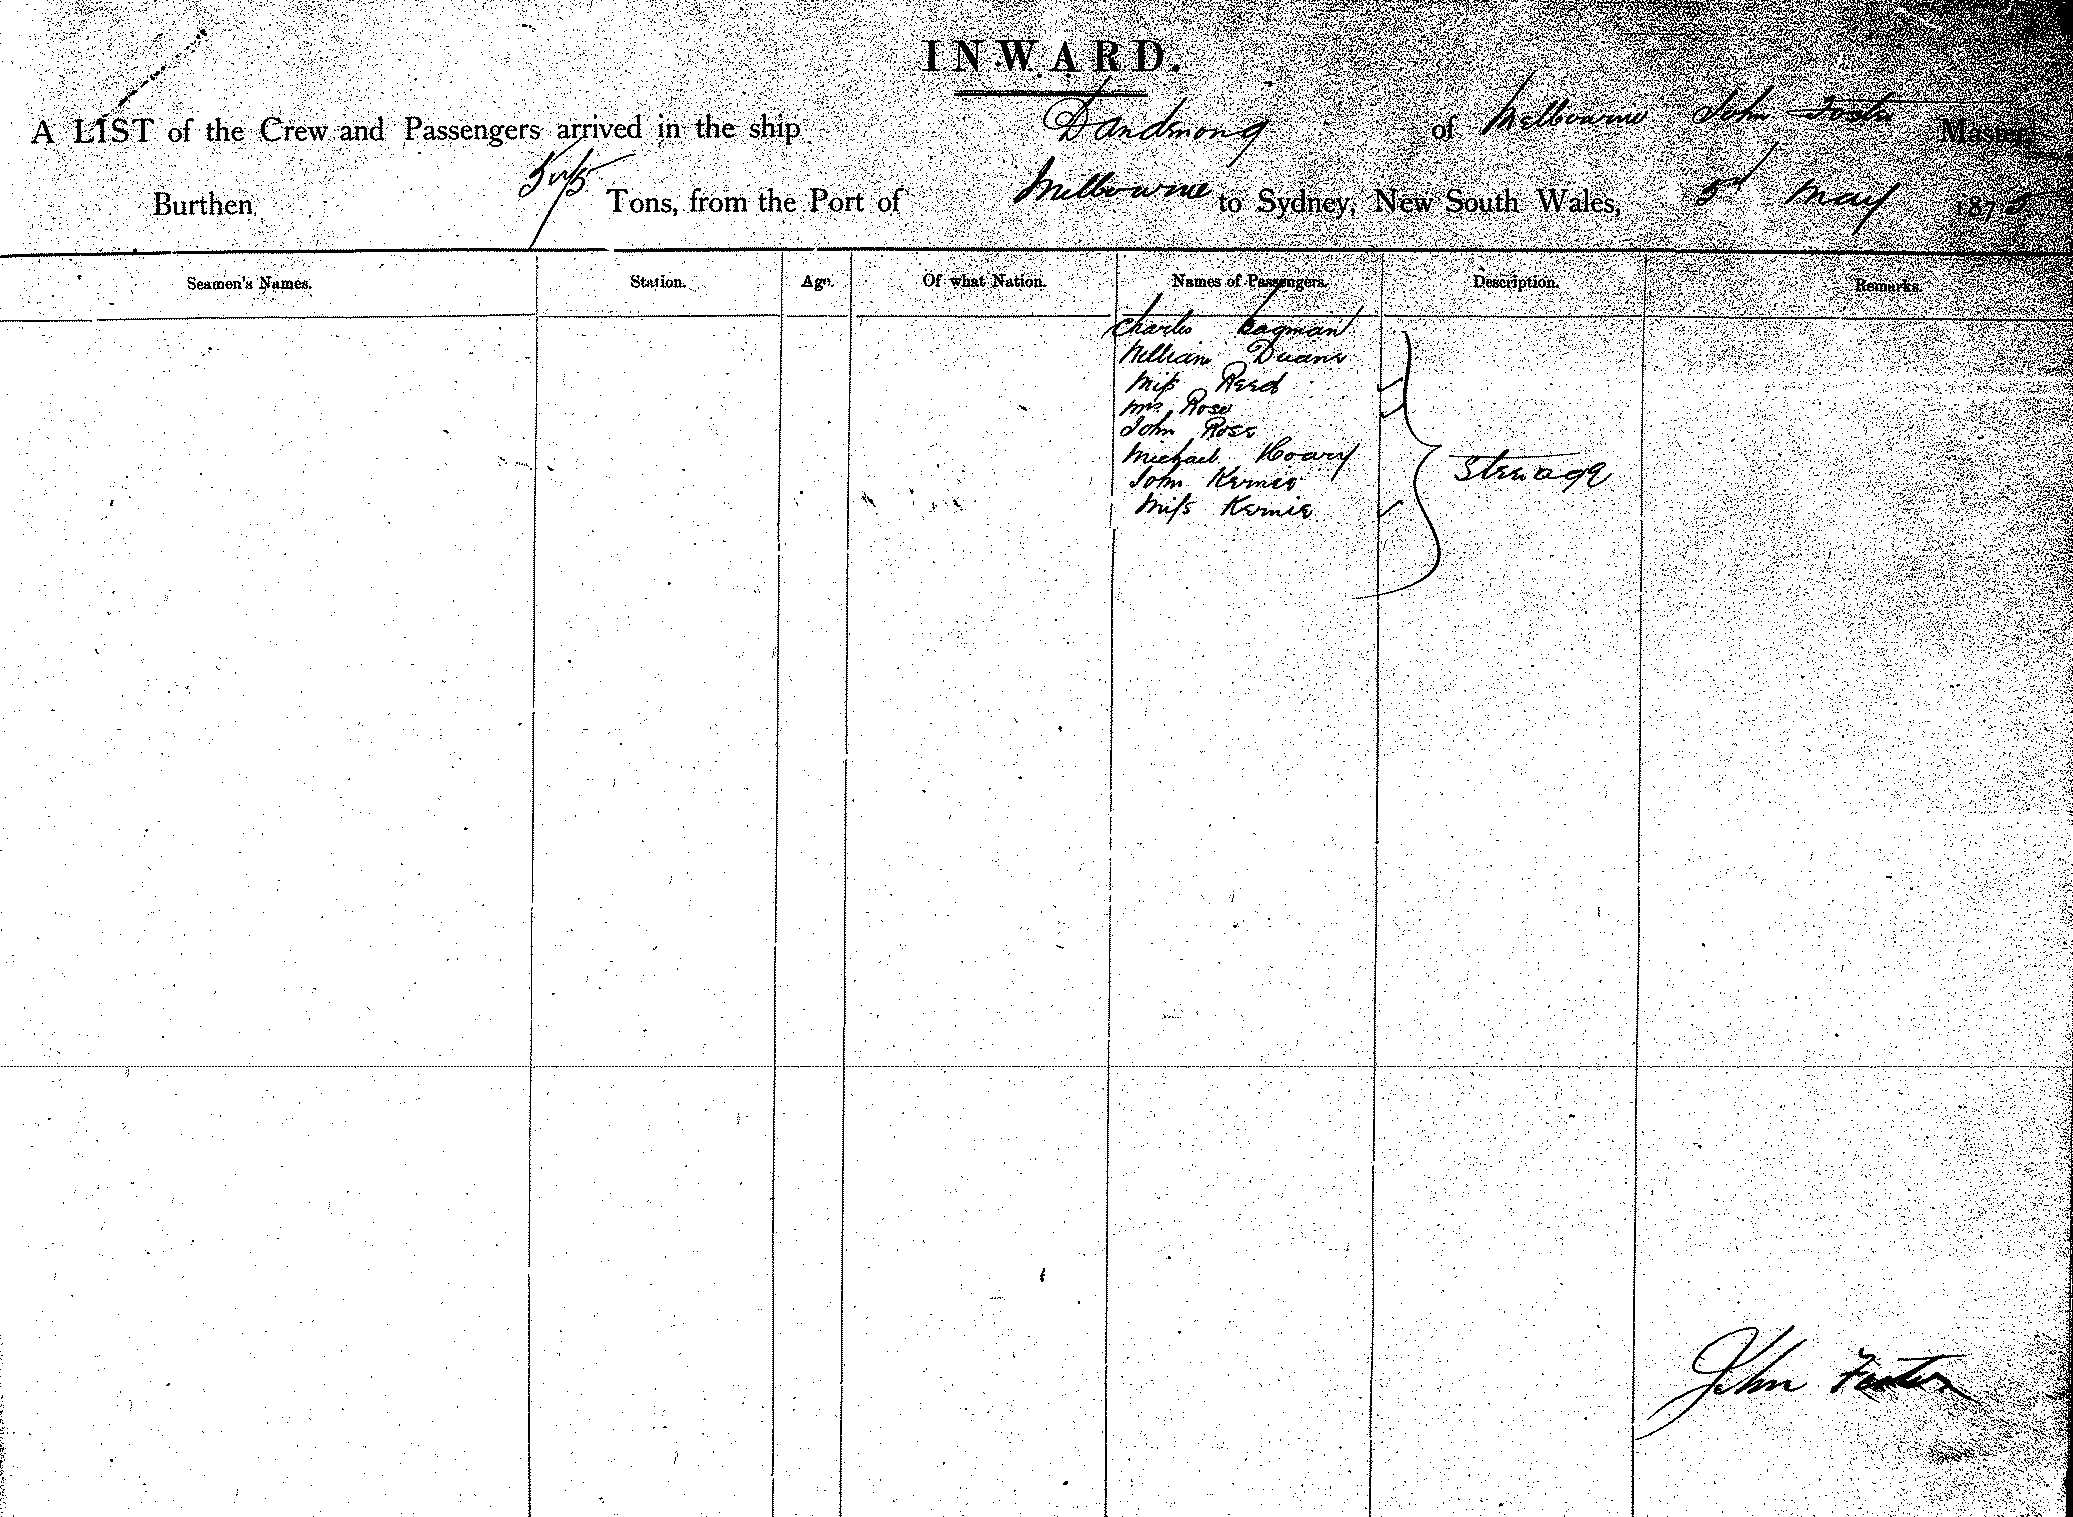 INWARD.
A LIST of the Crew and Passengers arrived in the ship Dandenong of Melbourne John Foster Master
Burthen Tons, from the Port of Melbourne to Sydney, New South Wales, 5th May 1875
Seamen's Names. Station. Age. Of what Nation. Names of Passengers. Description. Remarks.
Charles
William Duane
Miss Reed
Mrs Rose
John Rose
Michael Hoary
John Kernie
Miss Kernie
Steerage
John Foster